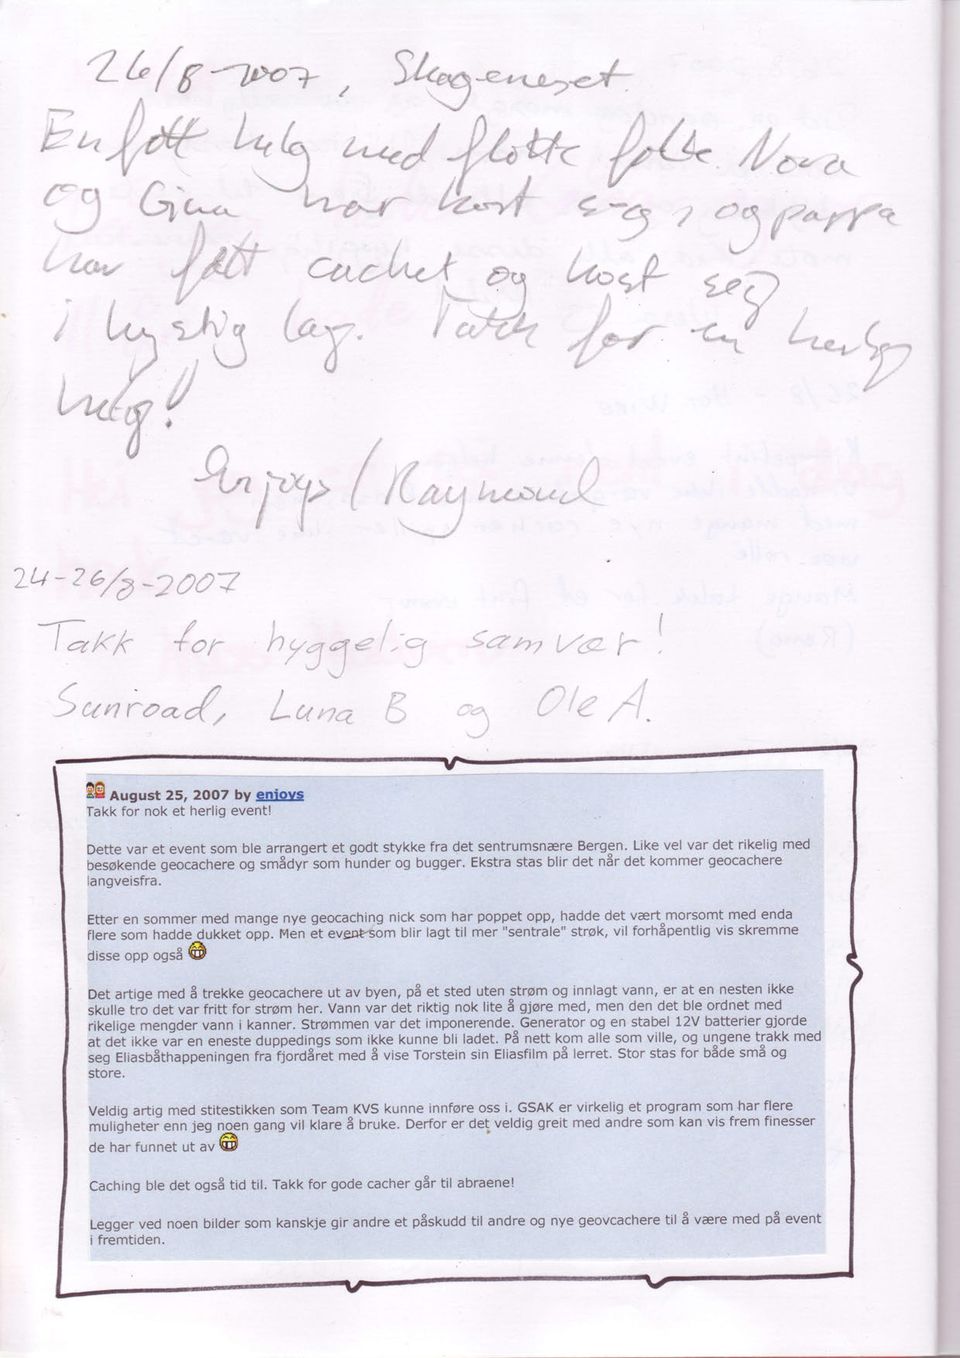 26/8-2007, Skageneset.
En flott helg med flotte folk. Nova
og Gaa har kost seg, og pappa
har fått cachet og kost seg
i hystig lag. Takk for en herlig
helg!
enjoys / Raymond
24-26/8-2007
Takk for hyggelig samvær!
Sunroad, Luna B og Ole A.
August 25, 2007 by enjoys
Takk for nok et herlig event!
Dette var et event som ble arrangert et godt stykke fra det sentrumsnære Bergen. Like vel var det rikelig med
besøkende geocachere og smådyr som hunder og bugger. Ekstra stas blir det når det kommer geocachere
langveisfra.
Etter en sommer med mange nye geocaching nick som har poppet opp, hadde det vært morsomt med enda
flere som hadde dukket opp. Men et event som blir lagt til mer "sentrale" strøk, vil forhåpentlig vis skremme
disse opp også
Det artige med å trekke geocachere ut av byen, på et sted uten strøm og innlagt vann, er at en nesten ikke
skulle tro det var fritt for strøm her. Vann var det riktig nok lite å gjøre med, men den det ble ordnet med
rikelige mengder vann i kanner. Strømmen var det imponerende. Generator og en stabel 12V batterier gjorde
at det ikke var en eneste duppedings som ikke kunne bli ladet. På nett kom alle som ville, og ungene trakk med
seg Eliasbåthappeningen fra fjordåret med å vise Torstein sin Eliasfilm på lerret. Stor stas for både små og
store.
Veldig artig med stitestikken som Team KVS kunne innføre oss i. GSAK er virkelig et program som har flere
muligheter enn jeg noen gang vil klare å bruke. Derfor er det veldig greit med andre som kan vis frem finesser
de har funnet ut av
Caching ble det også tid til. Takk for gode cacher går til abraene!
Legger ved noen bilder som kanskje gir andre et påskudd til andre og nye geovcachere til å være med på event
i fremtiden.